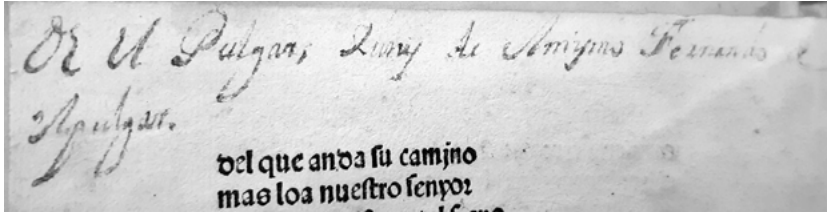 De U Pulgar, de Fernando
Apulgar.
del que anda su camjno
mas loa nuestro senyor